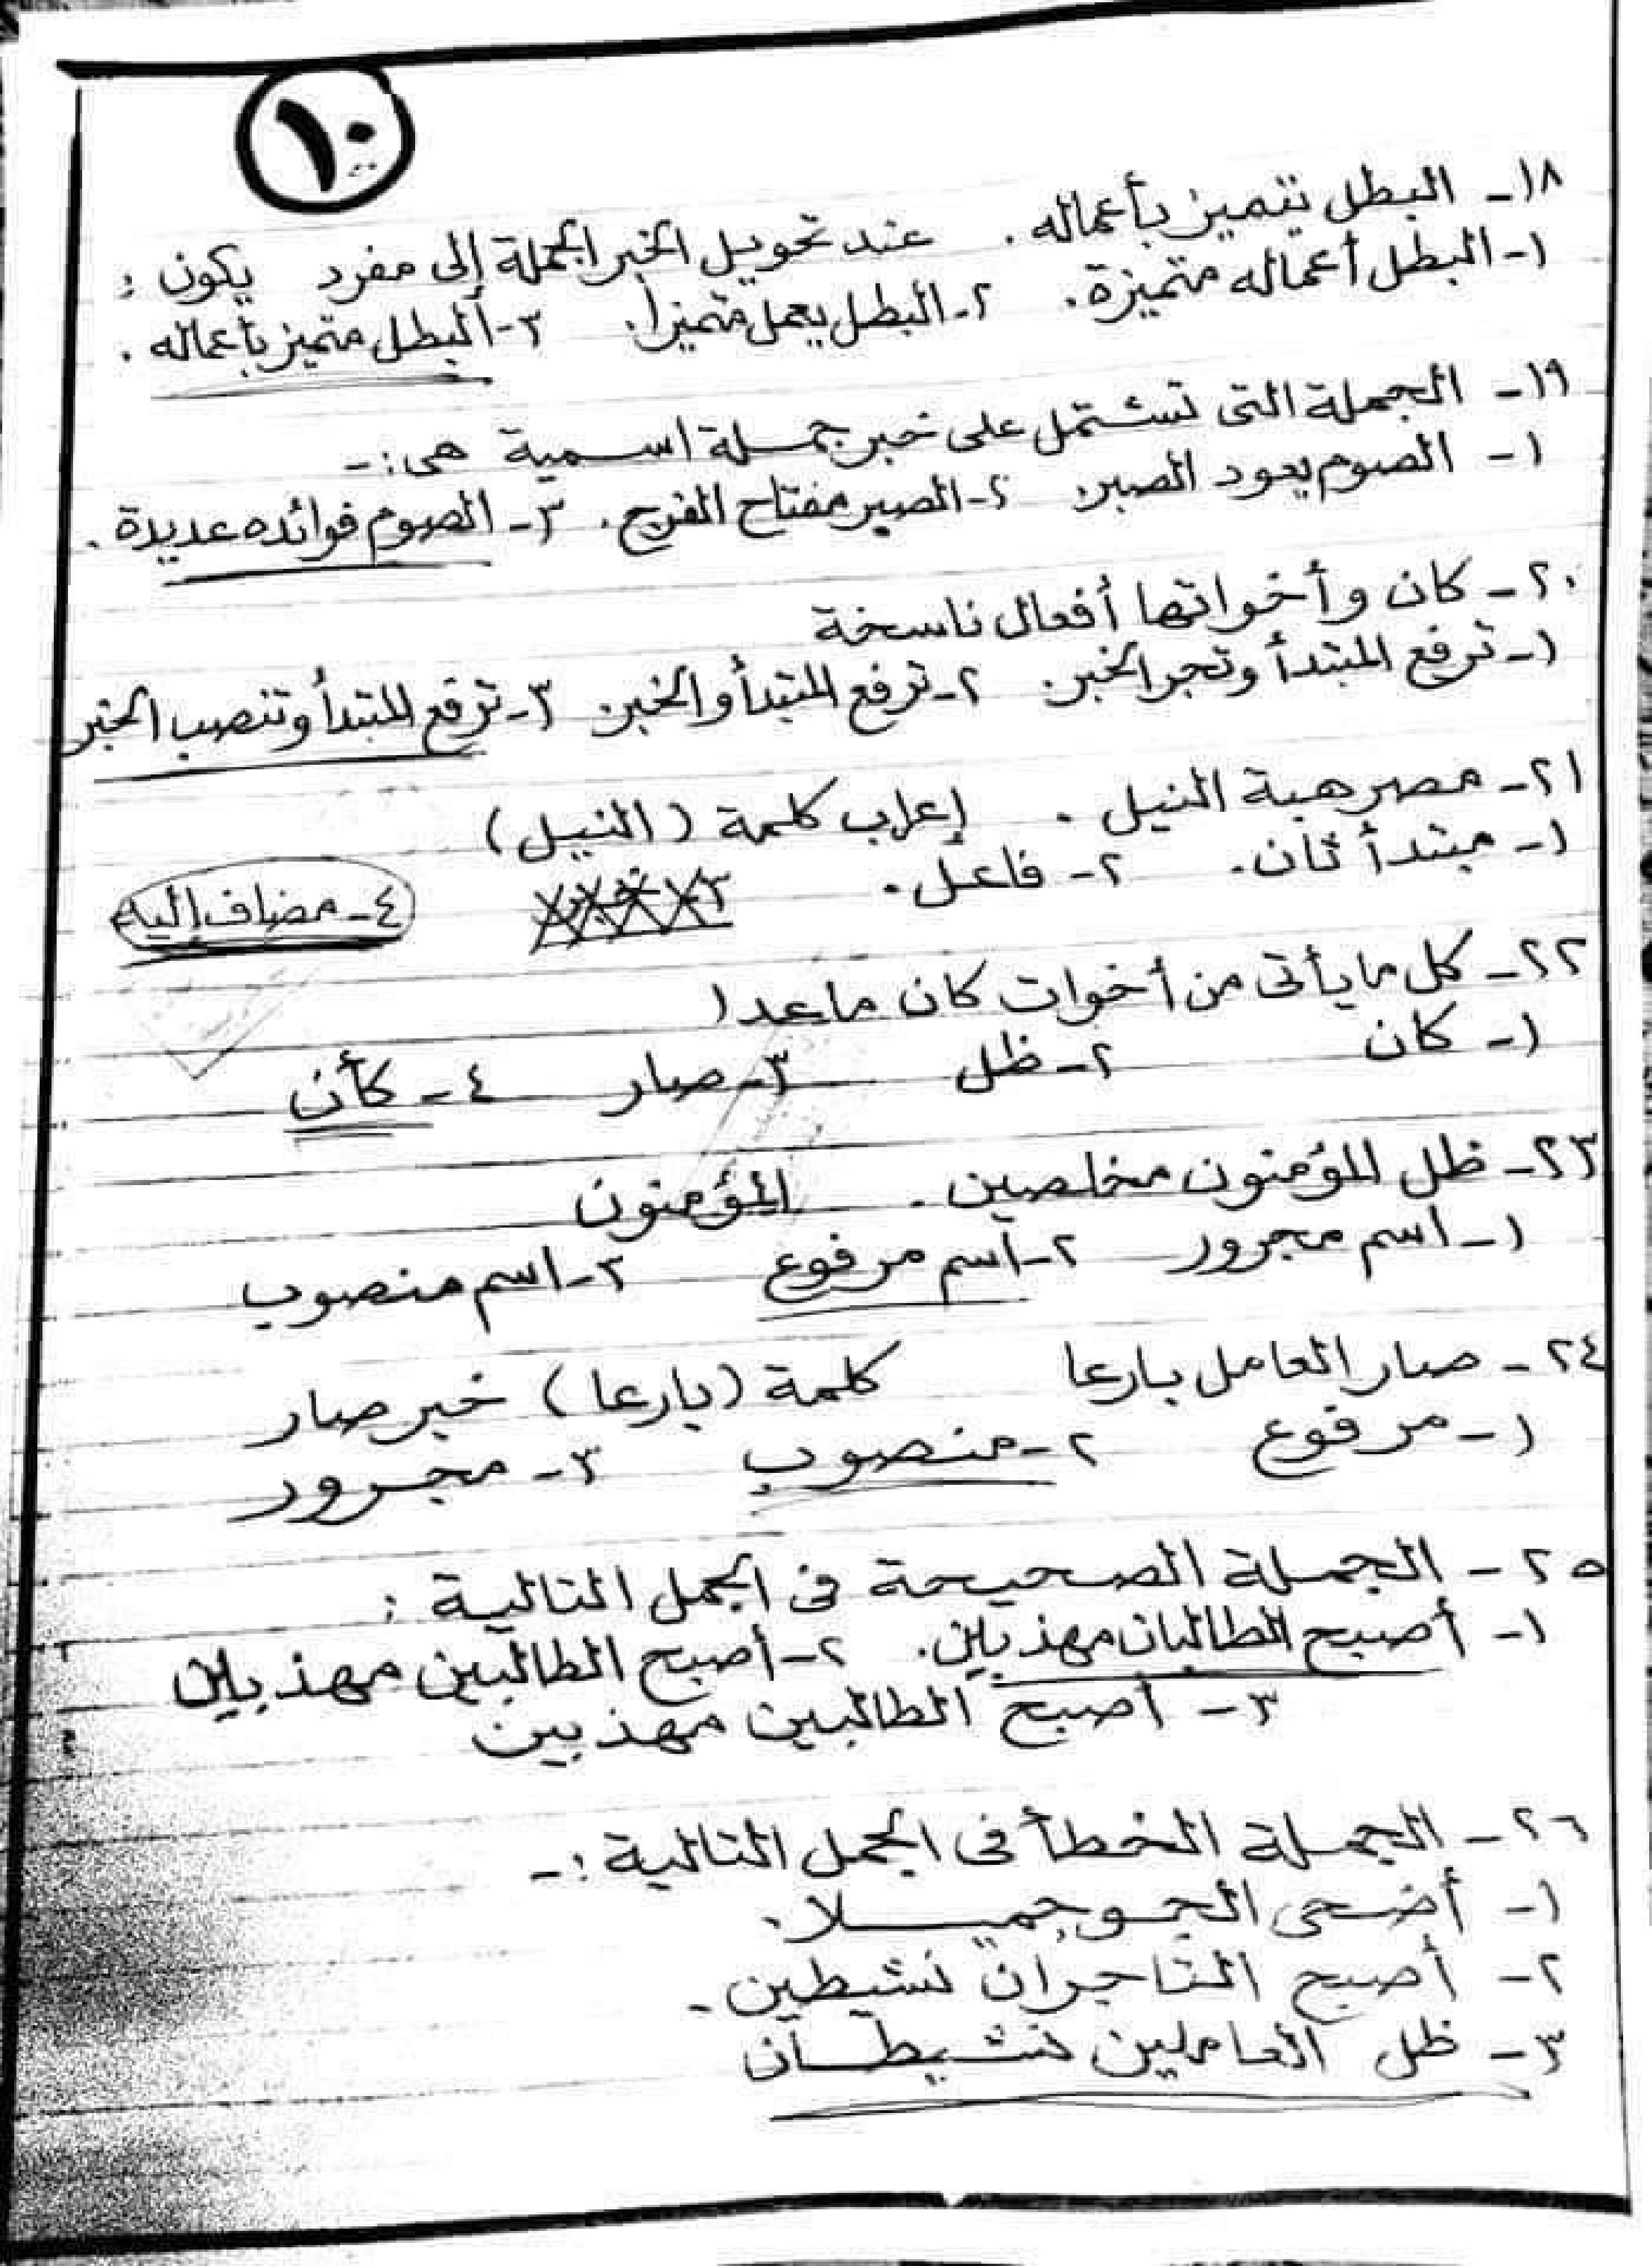 ١٠
١٨- البطل يتميز بأعماله. عند تحويل الخبر الجملة إلى مفرد يكون:
١- البطل أعماله متميزة. ٢- البطل يعمل متميزا. ٣- البطل متميز بأعماله.
١٩- الجملة التى تشتمل على خبر جملة اسمية هى:-
١- الصوم يعود الصبر. ٢- الصبر مفتاح الفرج. ٣- الصوم فوائده عديدة.
٢٠- كان وأخواتها أفعال ناسخة
١- ترفع المبتدأ وتجر الخبر. ٢- ترفع المبتدأ والخبر. ٣- ترفع المبتدأ وتنصب الخبر
٢١- مصر هبة النيل. إعراب كلمة (النيل)
١- مبتدأ ثان. ٢- فاعل. ٣- ٤- مضاف إليه
٢٢- كل ما يأتى من أخوات كان ما عدا
١- كان ٢- ظل ٣- صار ٤- كأن
٢٣- ظل المؤمنون مخلصين. المؤمنون
١- اسم مجرور ٢- اسم مرفوع ٣- اسم منصوب
٢٤- صار العامل بارعا كلمة (بارعا) خبر صار
١- مرفوع ٢- منصوب ٣- مجرور
٢٥- الجملة الصحيحة فى الجمل التالية:
١- أصبح الطالبان مهذبين. ٢- أصبح الطالبين مهذبين
٣- أصبح الطالبين مهذبين
٢٦- الجملة الخطأ فى الجمل التالية:-
١- أضحى الجو جميلا.
٢- أصبح التاجران نشيطين.
٣- ظل العاملين نشيطان